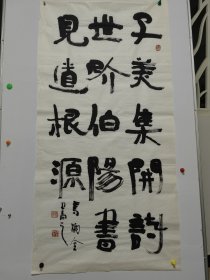 子美集開詩
世界伯陽書
見道根源